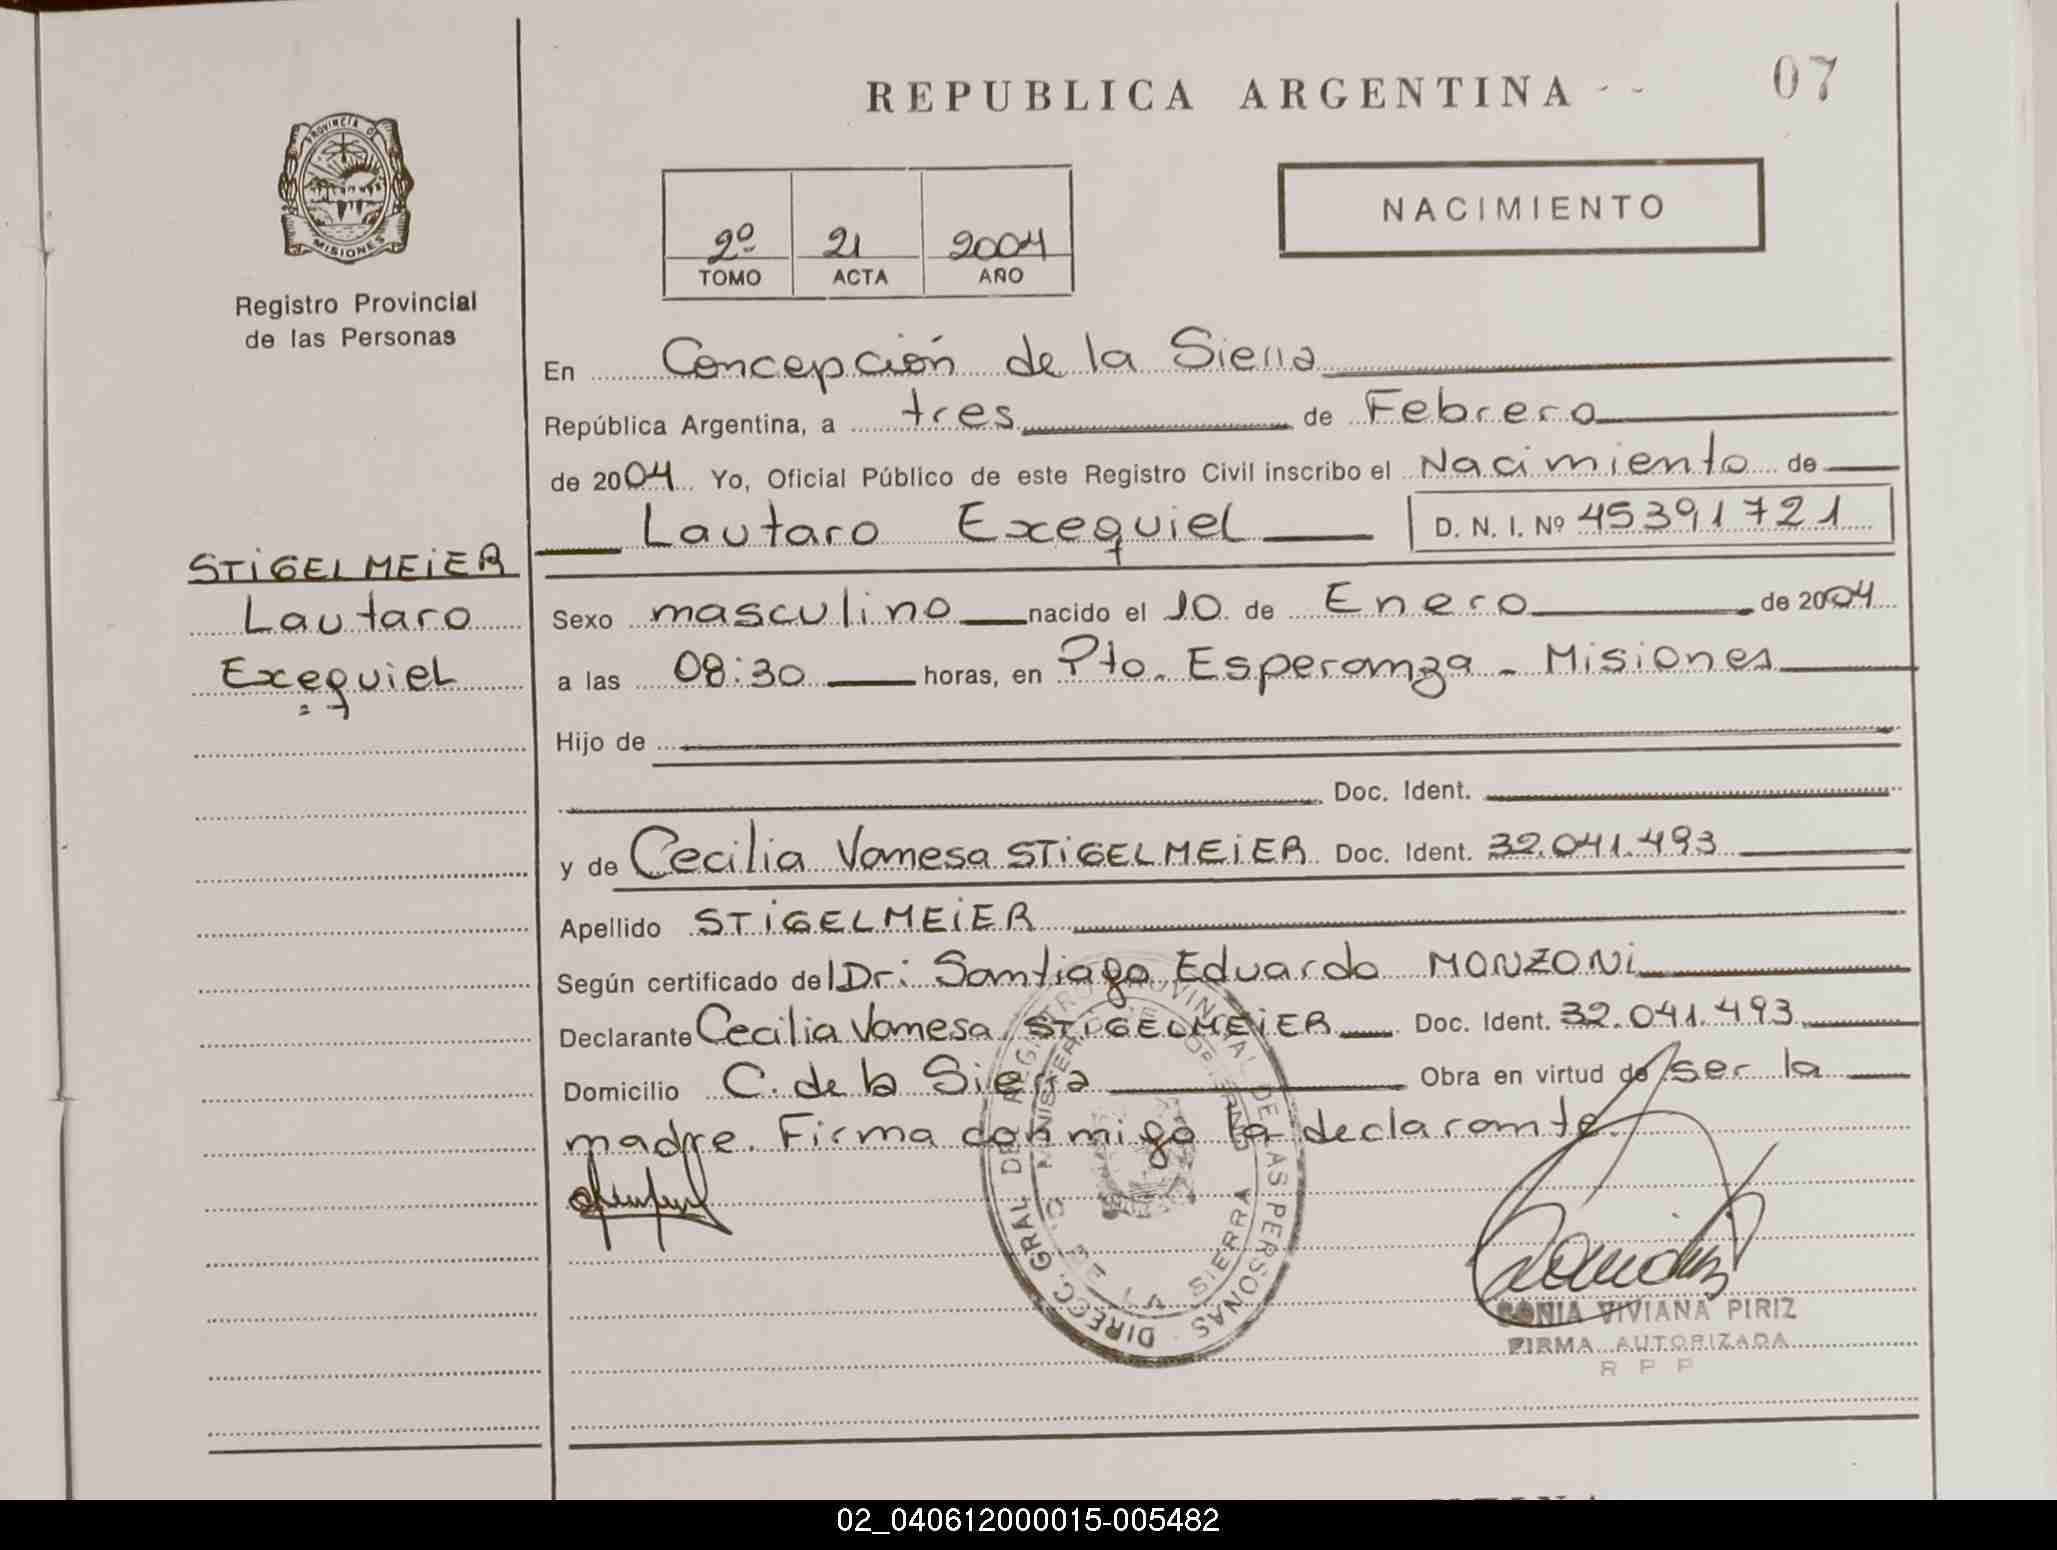 REPUBLICA ARGENTINA
07
PROVINCIA D
MISIONES
Registro Provincial
de las Personas
2º 21 2004
TOMO ACTA AÑO
NACIMIENTO
En Concepción de la Sierra
República Argentina, a tres de Febrero
de 2004 Yo, Oficial Público de este Registro Civil inscribo el Nacimiento de
Lautaro Exequiel D. N. I. Nº 45391721
STIGELMEIER
Lautaro
Exequiel
Sexo masculino nacido el 10 de Enero de 2004
a las 08:30 horas, en Pto. Esperanza - Misiones
Hijo de
Doc. Ident.
y de Cecilia Vanesa STIGELMEIER Doc. Ident. 32.041.493
Apellido STIGELMEIER
Según certificado del Dr: Santiago Eduardo MONZONi
Declarante Cecilia Vanesa STIGELMEIER Doc. Ident. 32.041.493
Domicilio C. de la Sierra Obra en virtud de ser la
madre. Firma conmigo la declarante.
DIRECC. GRAL. DEL REGISTRO PROVINCIAL DE LAS PERSONAS
MINISTERIO DE GOBIERNO
C. DE LA SIERRA
SONIA VIVIANA PIRIZ
FIRMA AUTORIZADA
R P P
02_040612000015-005482